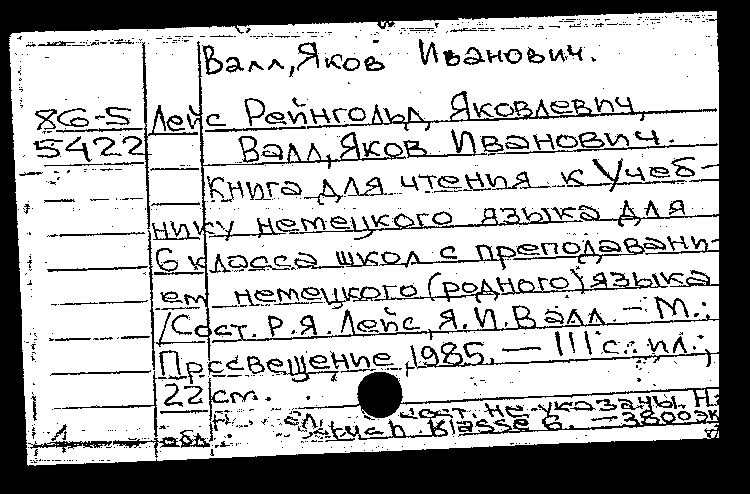 Валл, Яков Иванович.
86-5 Лейс Рейнгольд Яковлевич,
5422 Валл, Яков Иванович.
Книга для чтения к Учеб-
нику немецкого языка для
6 класса школ с преподавани-
ем немецкого (родного) языка
/Сост. Р.Я. Лейс, Я.И. Валл. — М.:
Просвещение, 1985. — 111 с.: ил.;
22 см.
сост. не указаны. На
1 обл.: Klasse 6. — 3800 эк